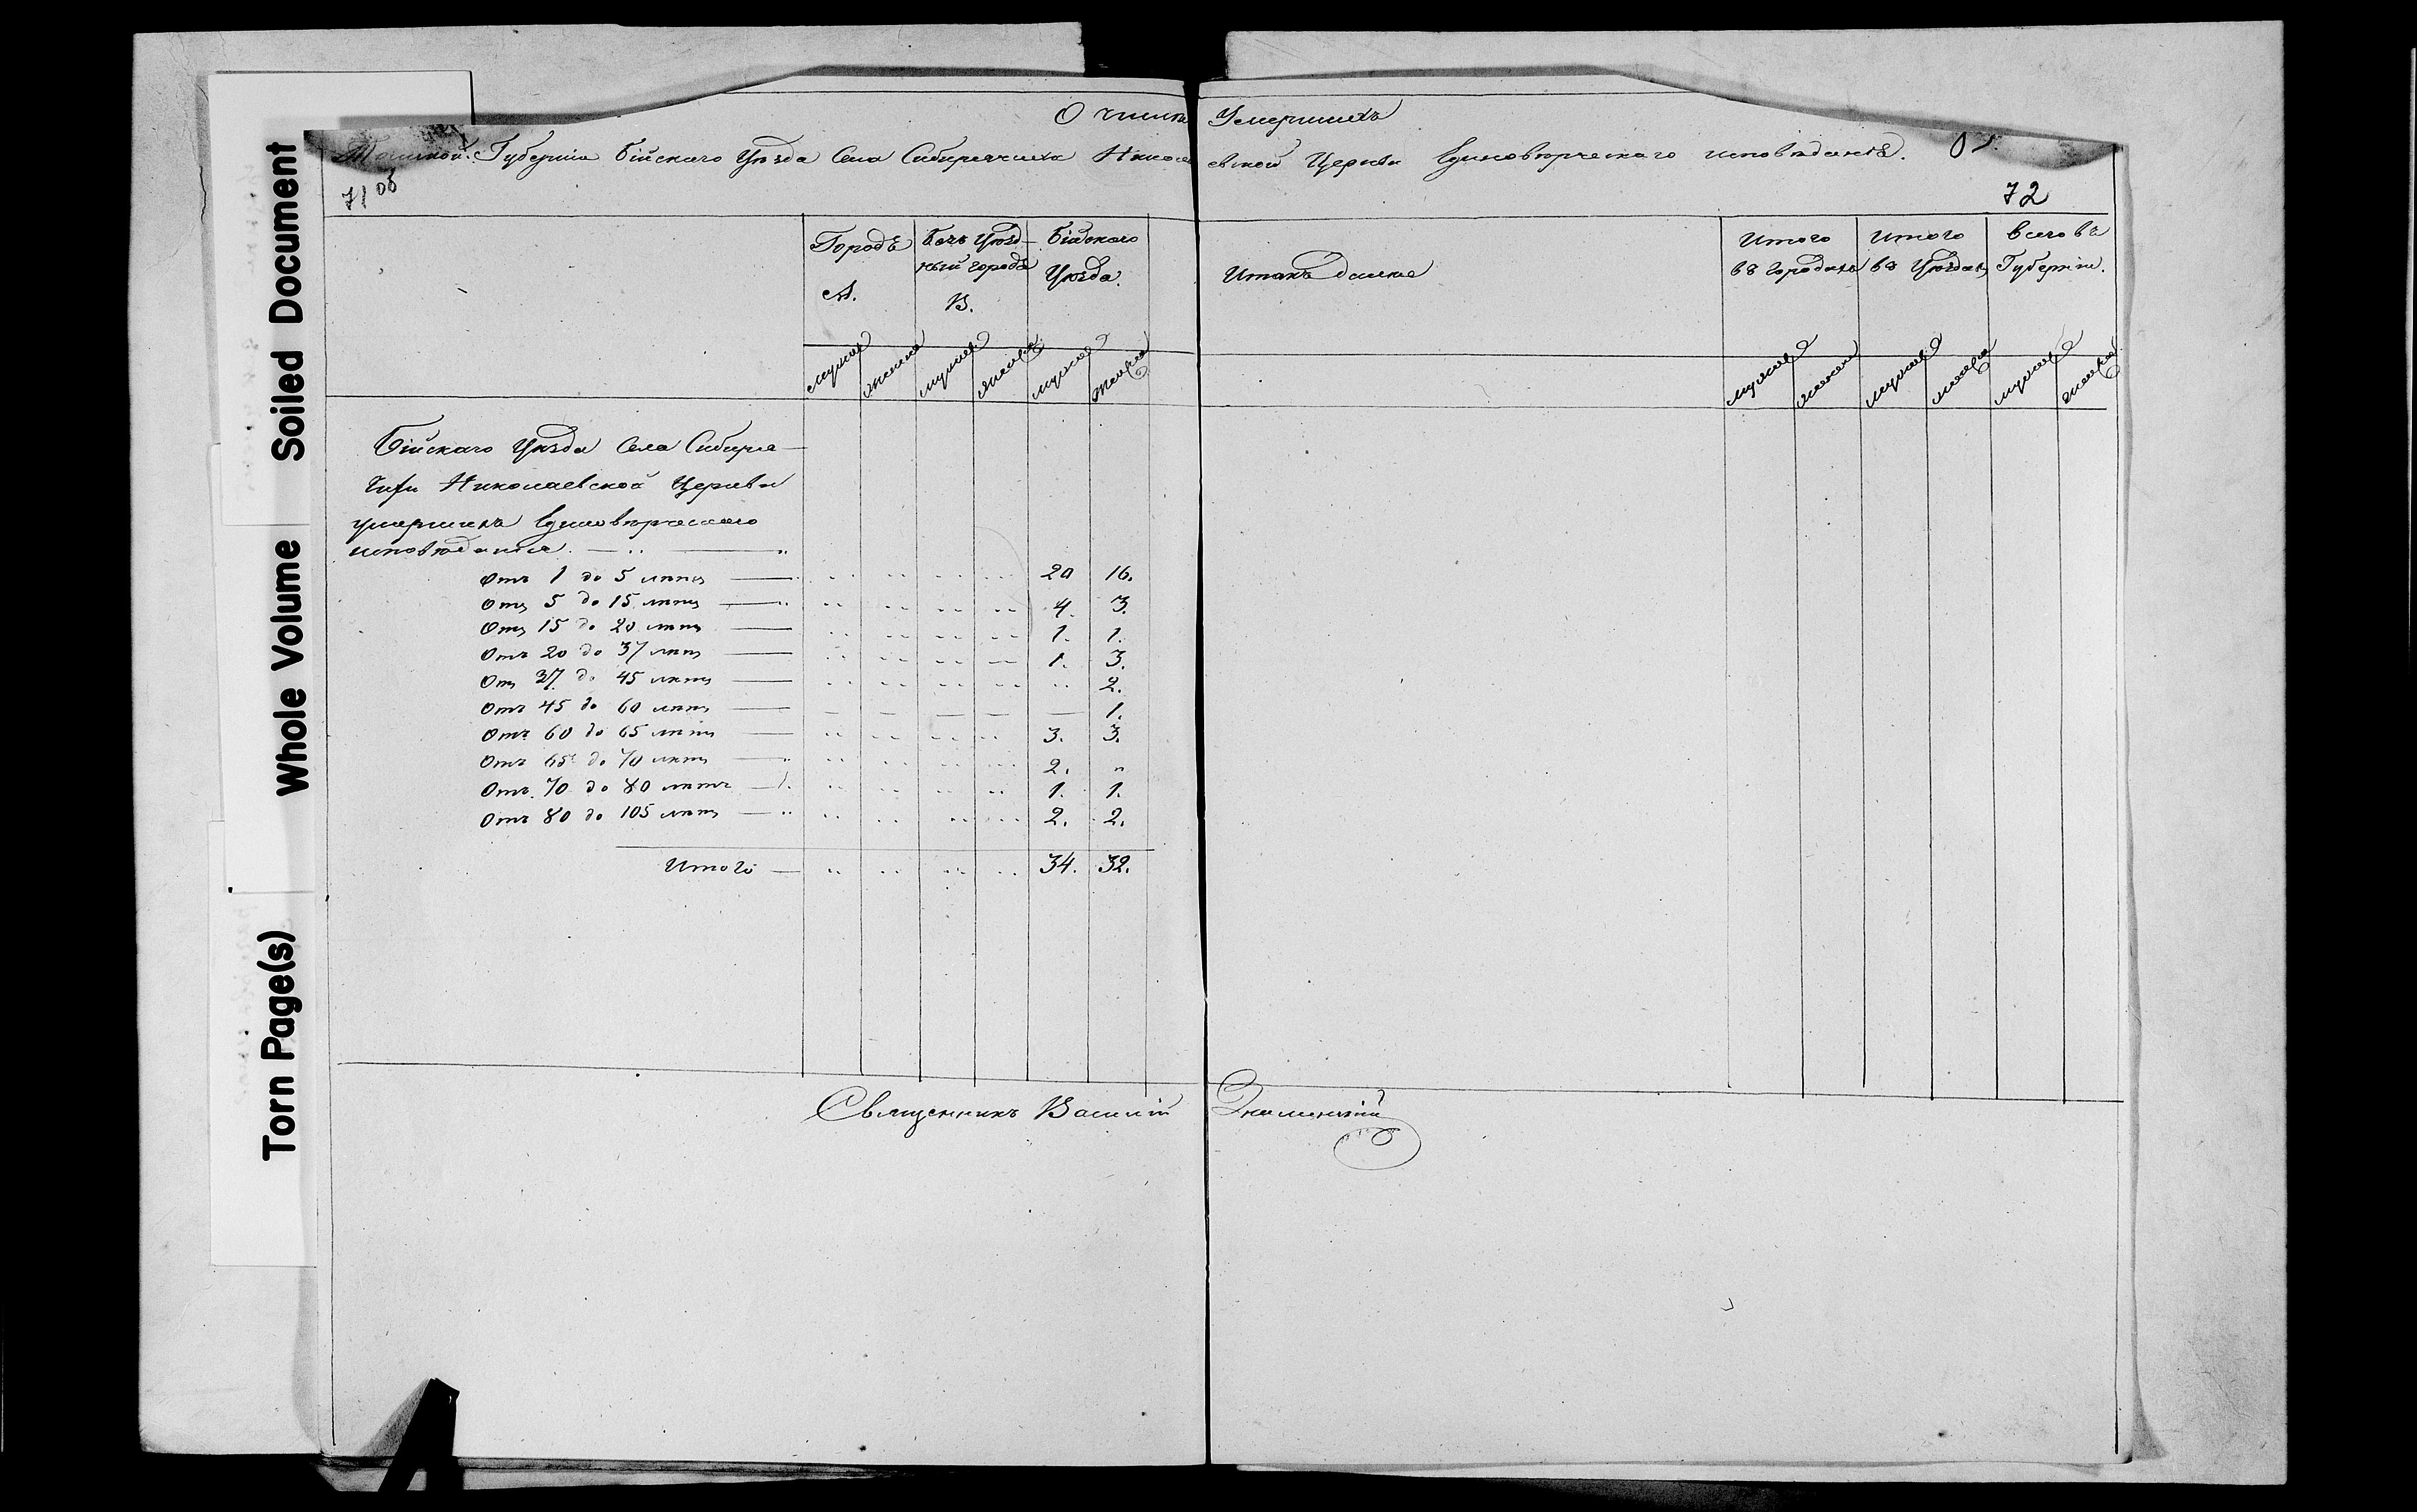 Soiled Document
Whole Volume
Torn Page(s)
О числѣ Умершихъ
Томской Губерніи Бійскаго Уѣзда Села Сибирячихи Николаевской Церкви Единовѣрческаго исповѣданія.
71 об
72
Городъ
А.
Безъ уѣзд-
ный городъ
В.
Бійскаго
Уѣзда.
Итакъ далѣе
Итого
въ городахъ
Итого
въ Уѣздахъ
Всего въ
Губерніи.
Бійскаго Уѣзда Села Сибиря-
чихи Николаевской Церкви
умершихъ Единовѣрческаго
исповѣданія.
Отъ 1 до 5 лѣтъ 20 16.
Отъ 5 до 15 лѣтъ 4. 3.
Отъ 15 до 20 лѣтъ 1. 1.
Отъ 20 до 37 лѣтъ 1. 3.
Отъ 37 до 45 лѣтъ 2.
Отъ 45 до 60 лѣтъ — 1.
Отъ 60 до 65 лѣтъ 3. 3.
Отъ 65 до 70 лѣтъ 2. "
Отъ 70 до 80 лѣтъ 1. 1.
Отъ 80 до 105 лѣтъ 2. 2.
Итого 34. 32.
Священникъ Василій Знаменскій